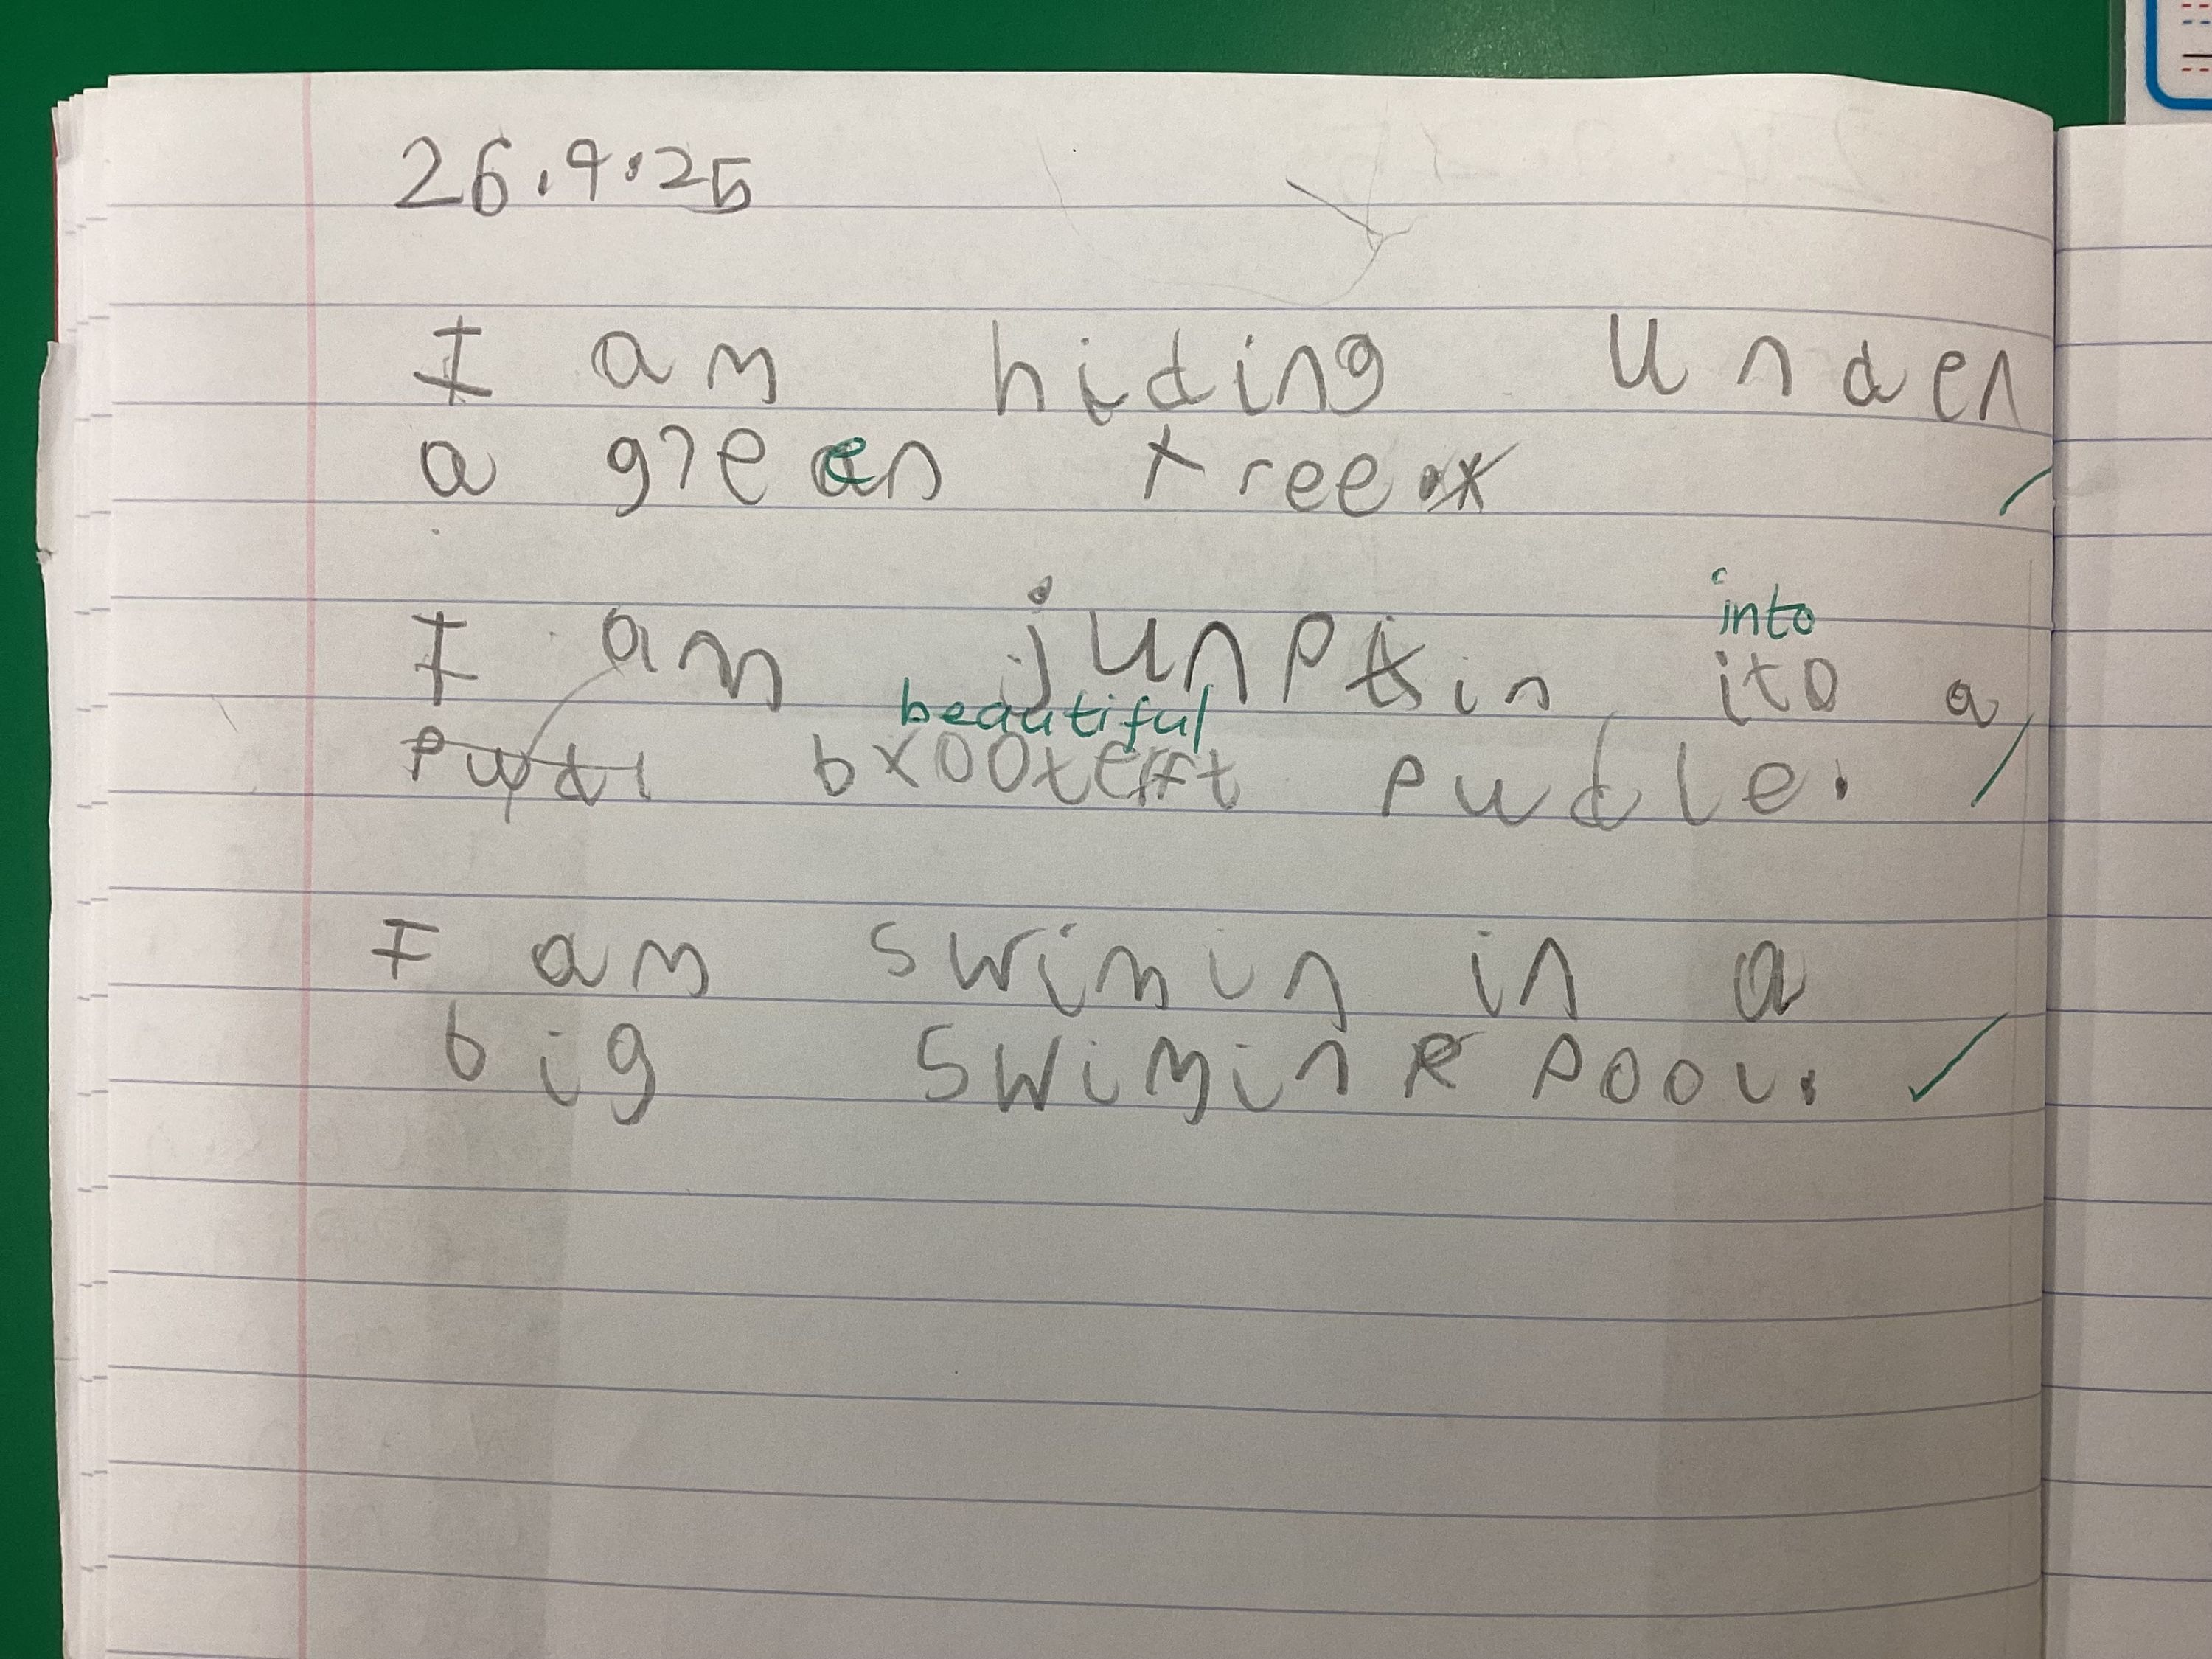 26.9.25
I am hiding under
a green tree.
into
I am junptin ito a
beautiful
pudl bxootefft pudle.
I am swimin in a
big swimin pool.